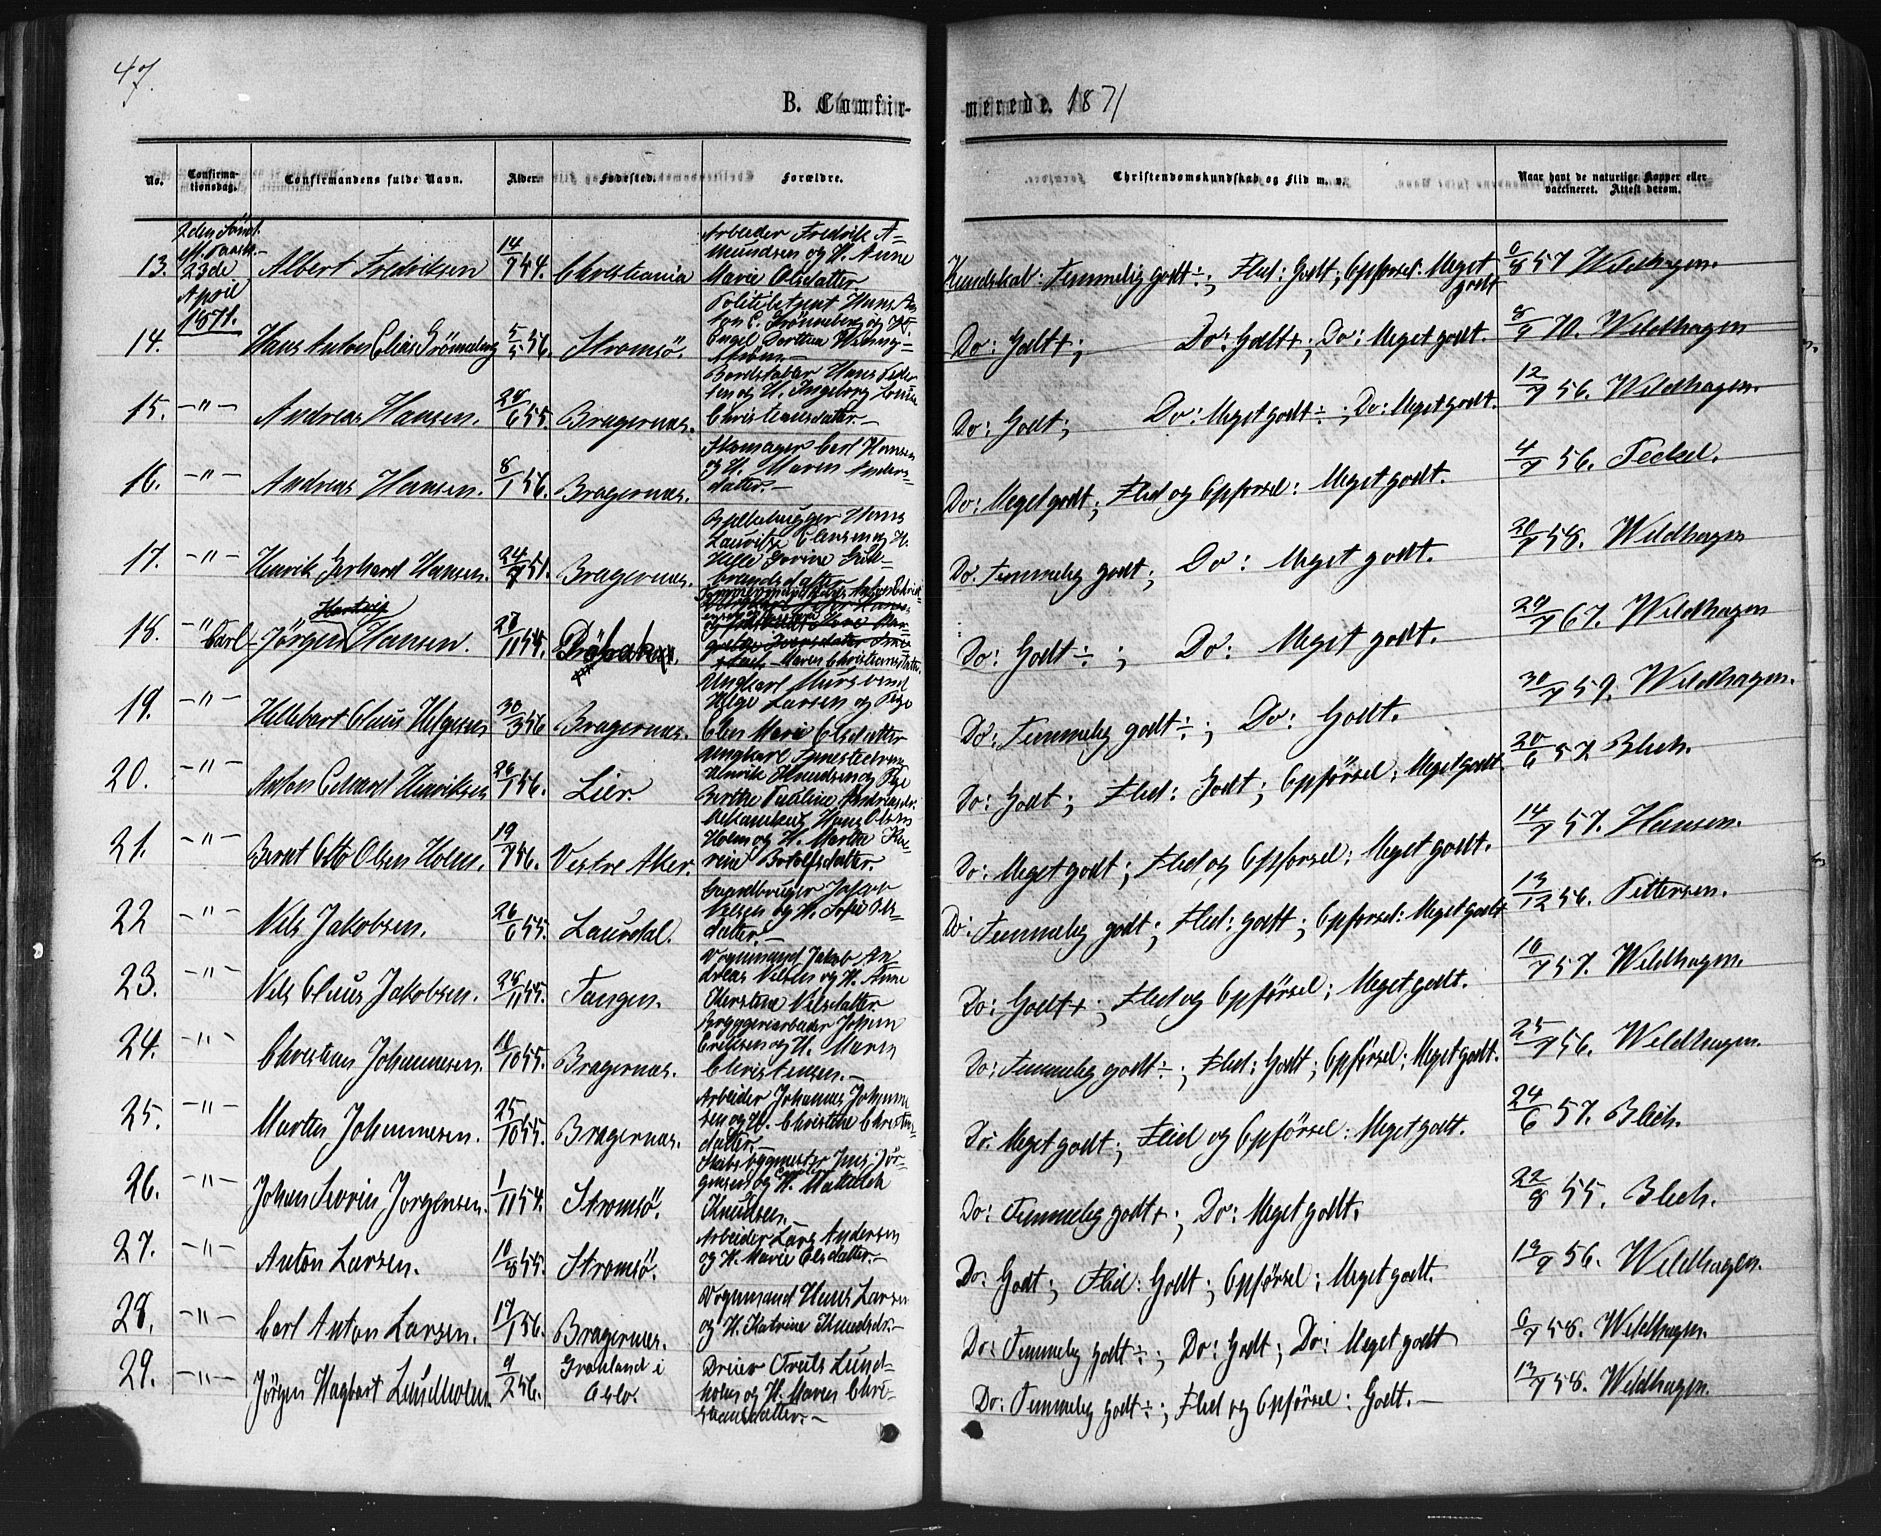 47.
B. Confirmerede. 1871
No.
Confirmationsdag.
Confirmandens fulde Navn.
Alder.
Fødested.
Forældre.
Christendomskundskab og Flid m. v.
Naar havt de naturlige Kopper eller vaccineret. Attest derom.
2den Sönd.
23de
April
1871.
13. Albert Fredriksen 14/7 54. Christiania
Arbeider Fredrik A-
mundsen og H. Anne
Marie Olsdatter
Kundskab: Temmelig godt ÷; Flid: Godt; Opførsel: Meget godt
6/8 57 Wildhagen.
14. Hans Anton Elias Grönneberg 5/5 56. Stromsö.
Politibetjent Hans An-
ton E. Grönneberg og H.
Engel Dorthea
Do: Godt+; Do: Godt+; Do: Meget godt.
8/9 70. Wildhagen
15. -"- Andreas Hansen. 28/6 55. Bragernæs.
Hans Peder-
sen og H. Ingeborg Lovise
Christensdatter.-
Do: Godt; Do: Meget godt÷; Do: Meget godt.
12/7 56. Wildhagen.
16. -"- Andreas Hansen. 8/1 56. Bragernæs.
Skomager Carl Hansen
og H. Maren Anders-
datter.-
Do: Meget godt; Flid og Opførsel: Meget godt.
4/7 56. Teckel.
17. -"- Henrik Gerhard Hansen. 24/7 51. Bragernæs.
Hans
Lauritz Clausen og H.
Helle Govine Gul-
brandsdatter
Do: Temmelig godt; Do: Meget godt.
20/7 58. Wildhagen
18. " Carl Jörgen Hartvig Hansen. 28/11 54.
Maren Christiansdatter
Do: Godt÷; Do: Meget godt.
29/7 67. Wildhagen
19. -"- Hellebart Olaus Helgesen 30/3 56 Bragernæs.
Ungkarl Mursvend
Helge Larsen og Pige
Olea Marie Olsdatter
Do: Temmelig godt÷; Do: Godt.
30/7 59. Wildhagen.
20. -"- Anton Edvard Henriksen 26/1 56. Lier.
Ungkarl Tjenestedreng
Henrik Knudsen og Pige
Berthe Pauline Andreasdr.
Do: Godt; Flid: Godt; Opförsel: Meget godt.
20/6 57 Blich.
21. -"- Bernt Otto Olsen Holm. 19/7 56. Vestre Aker.
Mekanikus Hans Olsen
Holm og H. Marthe Ka-
rine Botolfsdatter.
Do: Meget godt; Flid og Opførsel: Meget godt.
14/7 57. Hansen.
22 -"- Nils Jakobsen. 26/6 55. Laurdal.
Gaardbruger Jakob
Nilsen og H. Sofie Ols-
datter.-
Do: Temmelig godt; Flid: godt; Opførsel: Meget godt
13/12 56. Pettersen.
23. -"- Nils Olaus Jakobsen. 28/11 55. Tangen.
Vognmand Jakob An-
dreas Nilsen og H. Anne
Kerstine Nilsdatter
Do: Godt+; Flid og Opförsel: Meget godt.
10/7 57. Wildhagen.
24. -"- Christian Johannesen. 10/10 55. Bragernæs.
Bryggeriarbeider Johan
Eriksen og H. Maren
Christensen.-
Do: Temmelig godt÷; Flid: Godt; Opførsel: Meget godt.
25/7 56. Wildhagen.
25. -"- Martin Johannesen. 25/10 55. Bragernæs.
Arbeider Johannes Johanne-
sen og H. Christine Christens-
datter.-
Do: Meget godt; Flid og Opförsel: Meget godt.
24/6 57. Blich.
26. -"- Johan Severin Jorgensen. 1/11 54. Stromsö.
Skibsbygmester Jens Jör-
gensen og H. Mathilde
Knudsen.-
Do: Temmelig godt+; Do: Meget godt.
22/8 55. Blich.
27. -"- Anton Larsen. 10/8 55. Stromsö.
Arbeider Lars Andersen
og H. Marie Olsdatter.-
Do: Godt; Flid: Godt; Opförsel: Meget godt.
13/9 56. Wildhagen.
28. -"- Carl Anton Larsen. 17/1 56. Bragernæs.
Vognmand Hans Larsen
og H. Katrine Knudsdr.-
Do: Temmelig godt÷; Do: Godt; Do: Meget godt
6/7 58. Wildhagen.
29. -"- Jörgen Hagbart Lundholm. 9/2 56. Grønland i Oslo.
Dreier Truls Lund-
holm og H. Maren Chri-
stiansdatter.-
Do: Temmelig godt÷; Flid og Opförsel: Godt.-
13/7 58. Wildhagen.